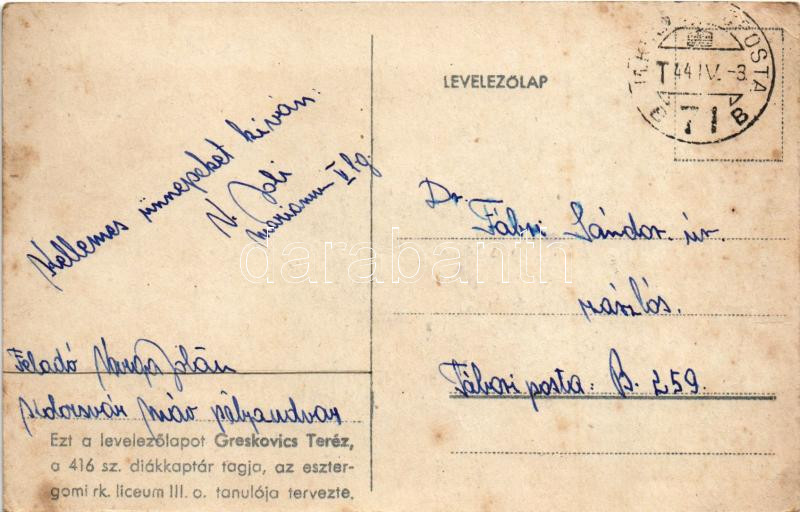 LEVELEZŐLAP
POSTA
T 44 IV. -3.
B 71 B
Kellemes ünnepeket kíván:
V. Joli
Marianum V
Dr. Fábri Sándor. úr.
zászlós.
Tábori posta: B. 259.
Feladó Varga Jolán
Kolozsvár Máv pályaudvar
Ezt a levelezőlapot Greskovics Teréz,
a 416 sz. diákkaptár tagja, az eszter-
gomi rk. liceum III. o. tanulója tervezte.
darabanth